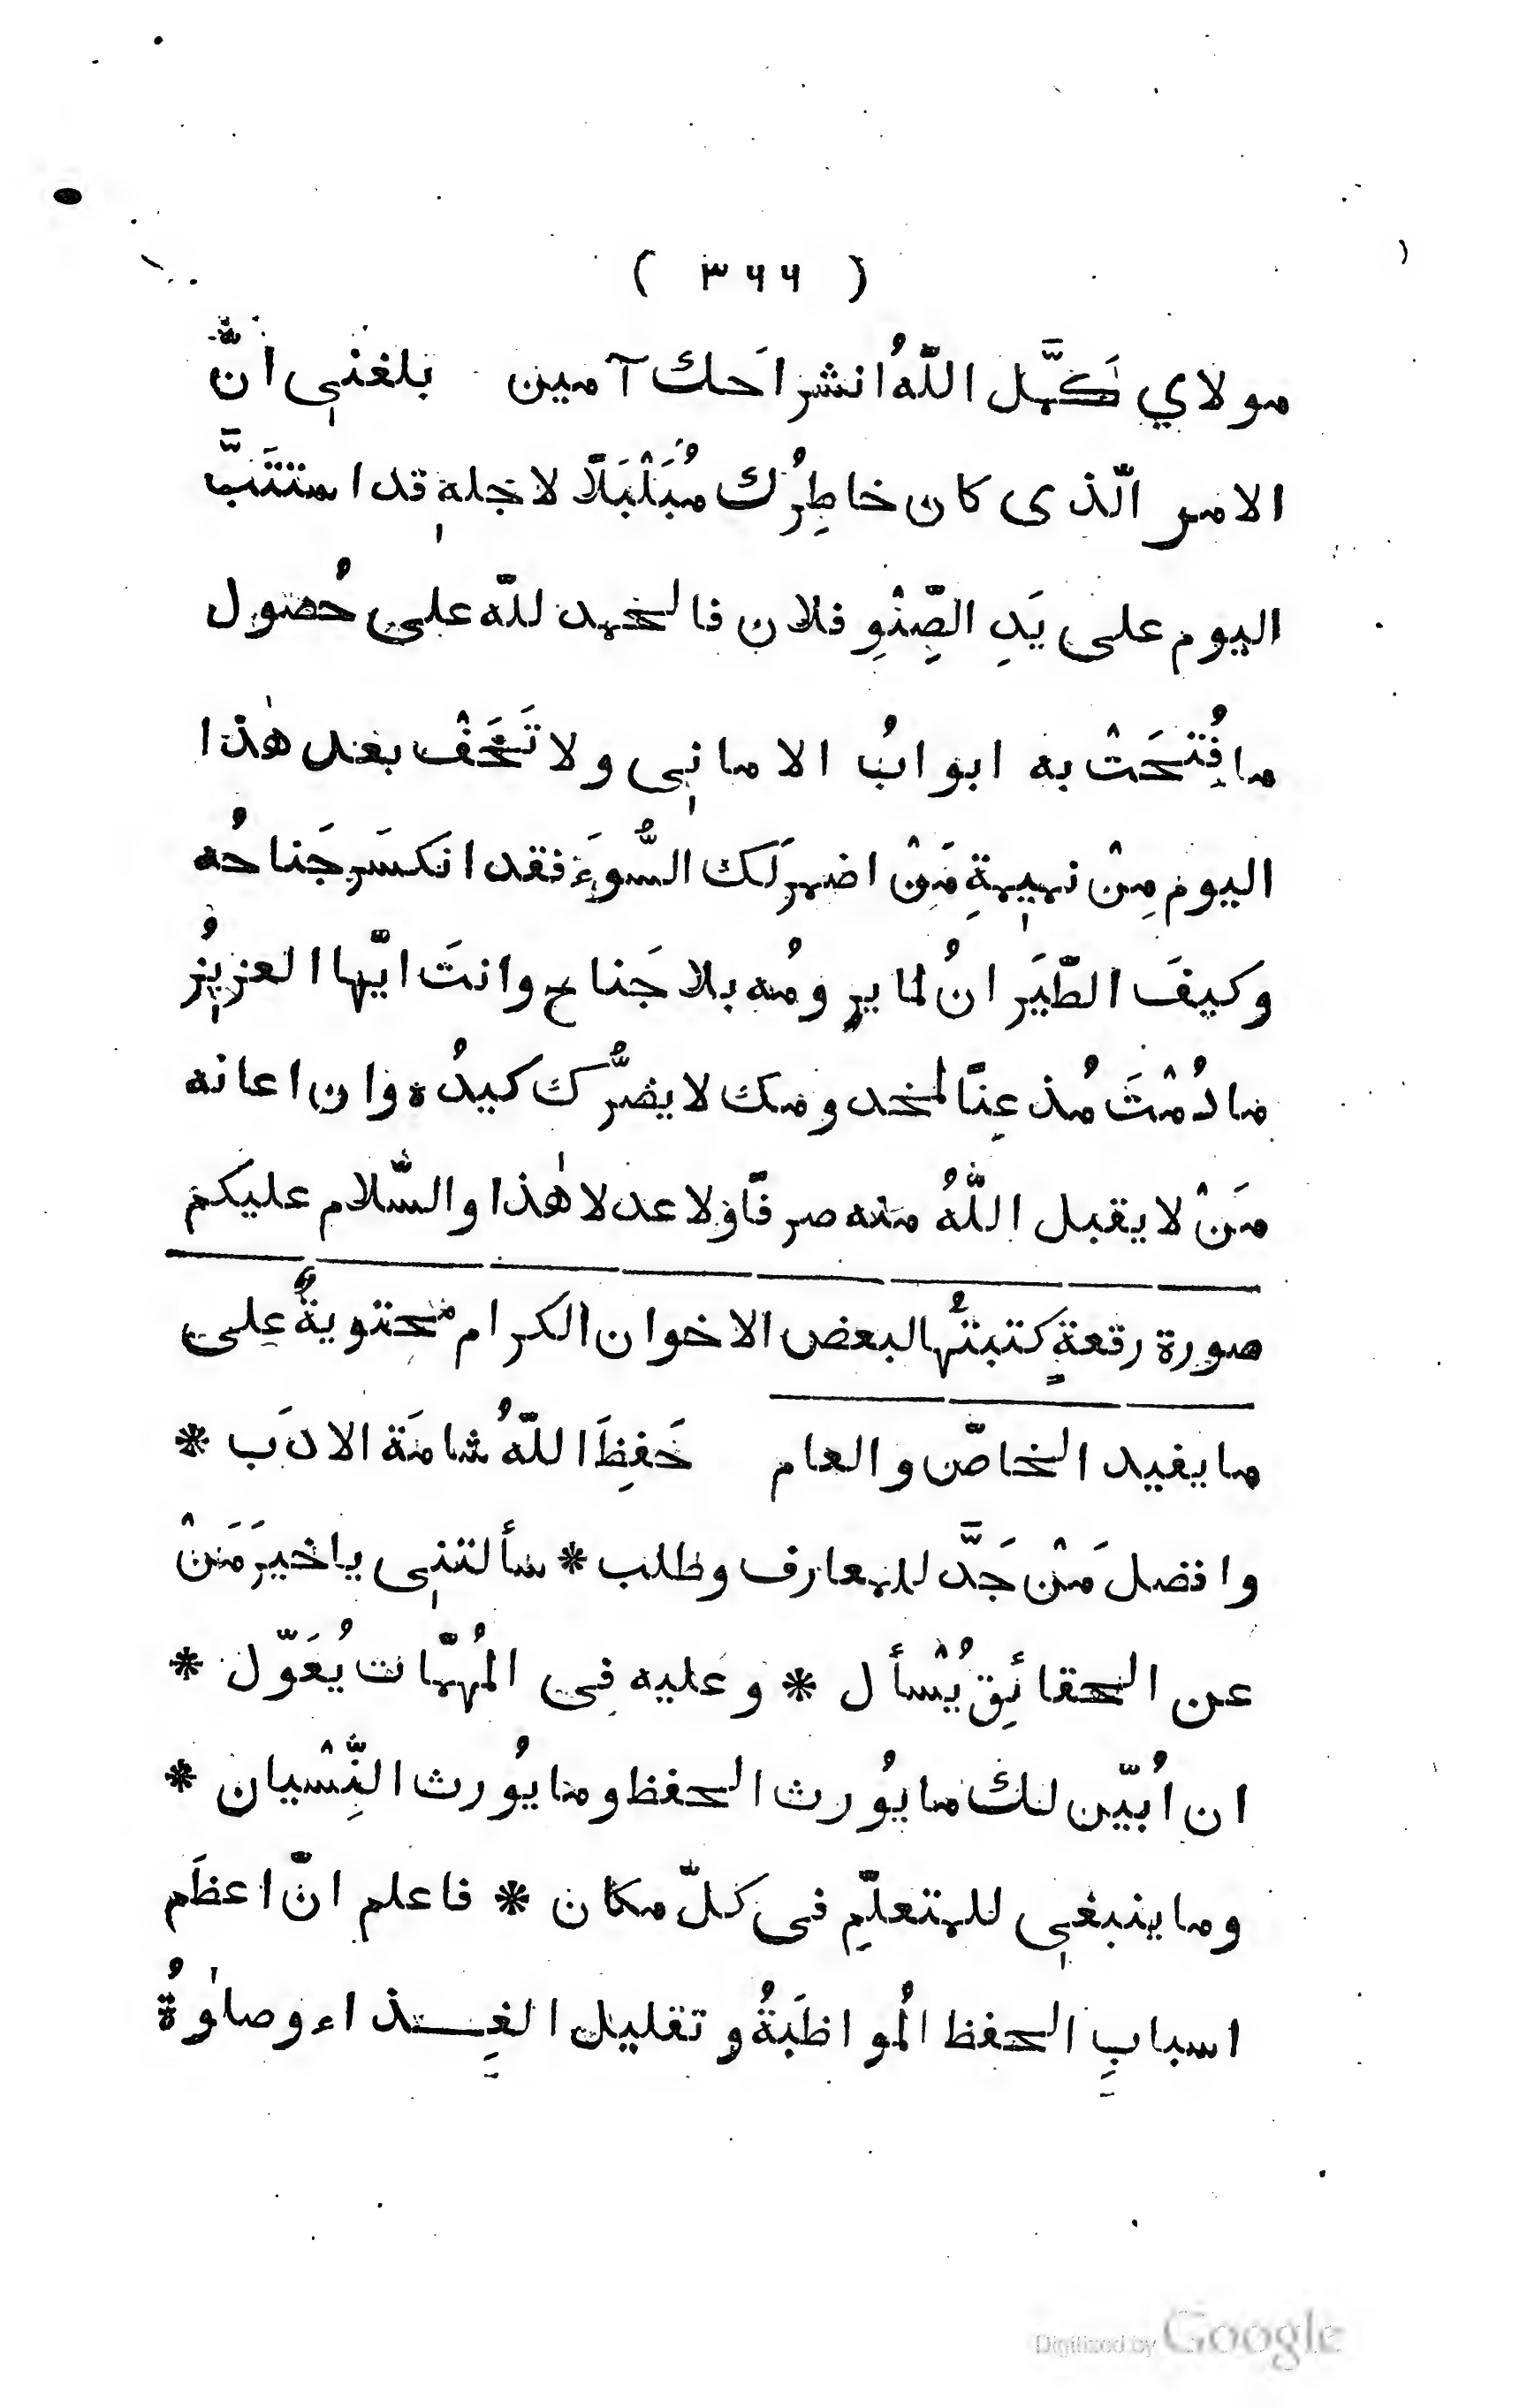 ( ٣٦٦ )
مولاي كَمَّل اللّٰهُ انشراحَك آمين بلغني انَّ
الامر الّذى كان خاطِرُك مُبَلْبَلًا لاجله قد استتَبَّ
اليوم على يَدِ الصِّنْوِ فلان فالحمد للّه على حُصول
ما فُتِحَتْ به ابوابُ الاماني ولا تَخَفْ بعد هٰذا
اليوم مِنْ نميمةِ مَنْ اضمر لَك السُّوءَ فقد انكسَر جَناحُه
وكيفَ الطَّيَرانُ لما يرومُه بلا جَناح وانتَ ايّها العزيزُ
مادُمْتَ مُذعِنًا لمخدومك لا يضرُّك كيدُه وان اعانه
مَنْ لا يقبل اللّٰهُ منه صرفًا ولا عدلا هٰذا والسّلام عليكم
صورة رقعةٍ كتبتُها لبعض الاخوان الكرام محتويةٌ على
ما يفيد الخاصّ والعام حَفِظَ اللّٰهُ شامَة الادَب *
وافضل مَنْ جَدَّ للمعارف وطلب * سألتني يا خيرَ مَنْ
عن الحقائِق يُسْأل * وعليه فِى المُهمّات يُعَوّل *
ان اُبيّن لك ما يُورث الحفظ وما يُورث النِّسْيان *
وما ينبغي للمتعلّمِ فى كلّ مكان * فاعلم انّ اعظَم
اسبابِ الحفظ المُواظَبةُ وتقليل الغِذاء وصلٰوةُ
Digitized by Google